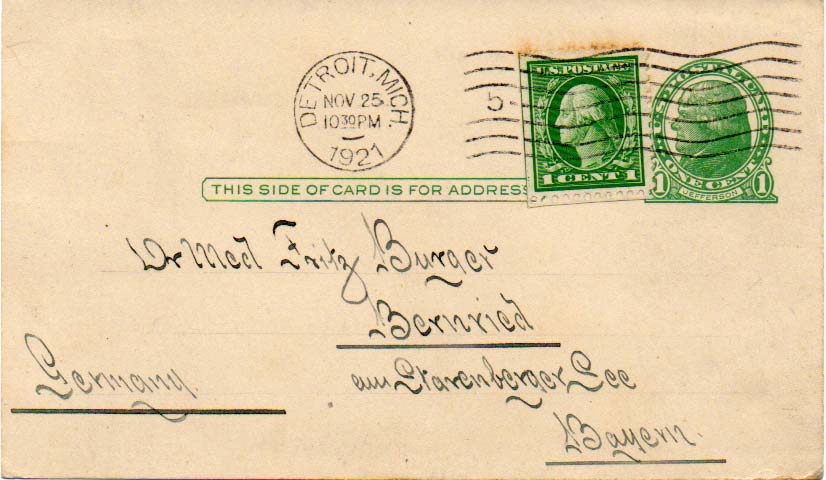 DETROIT, MICH.
NOV 25
10 30 PM
1921
5
U.S. POSTAGE
1 CENT 1
POSTAL CARD
1 ONE CENT 1
JEFFERSON
THIS SIDE OF CARD IS FOR ADDRESS
Dr Med Fritz Burger
Bernried
am Starenberger See
Germany.
Bayern.